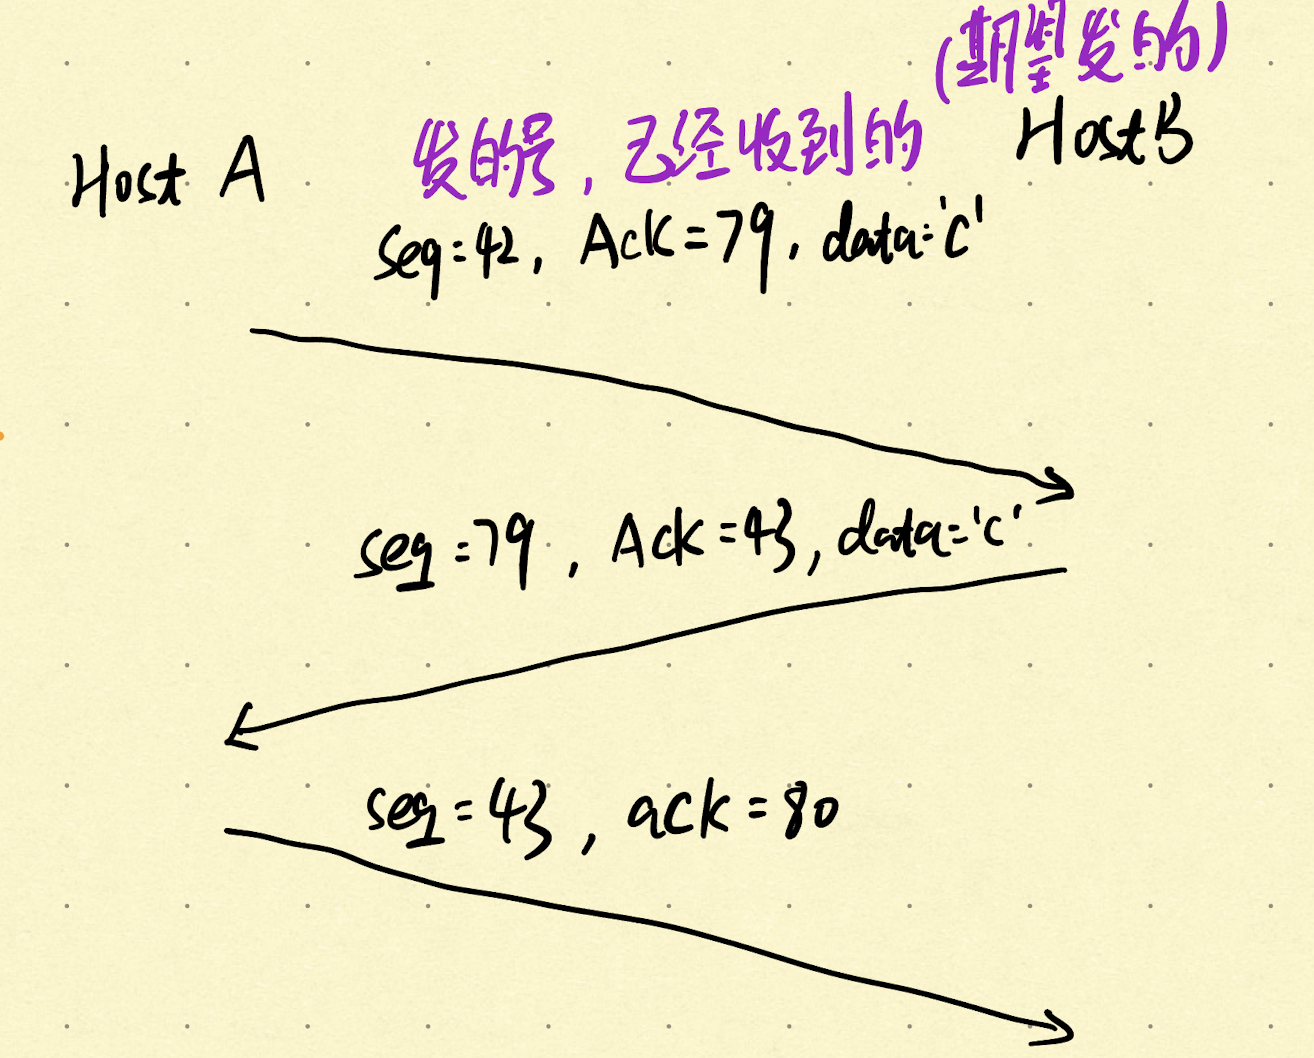 (期望发的)
Host A
发的号, 已经收到的
Host B
seq=42, Ack=79, data='c'
seq=79, Ack=43, data='c'
seq=43, ack=80